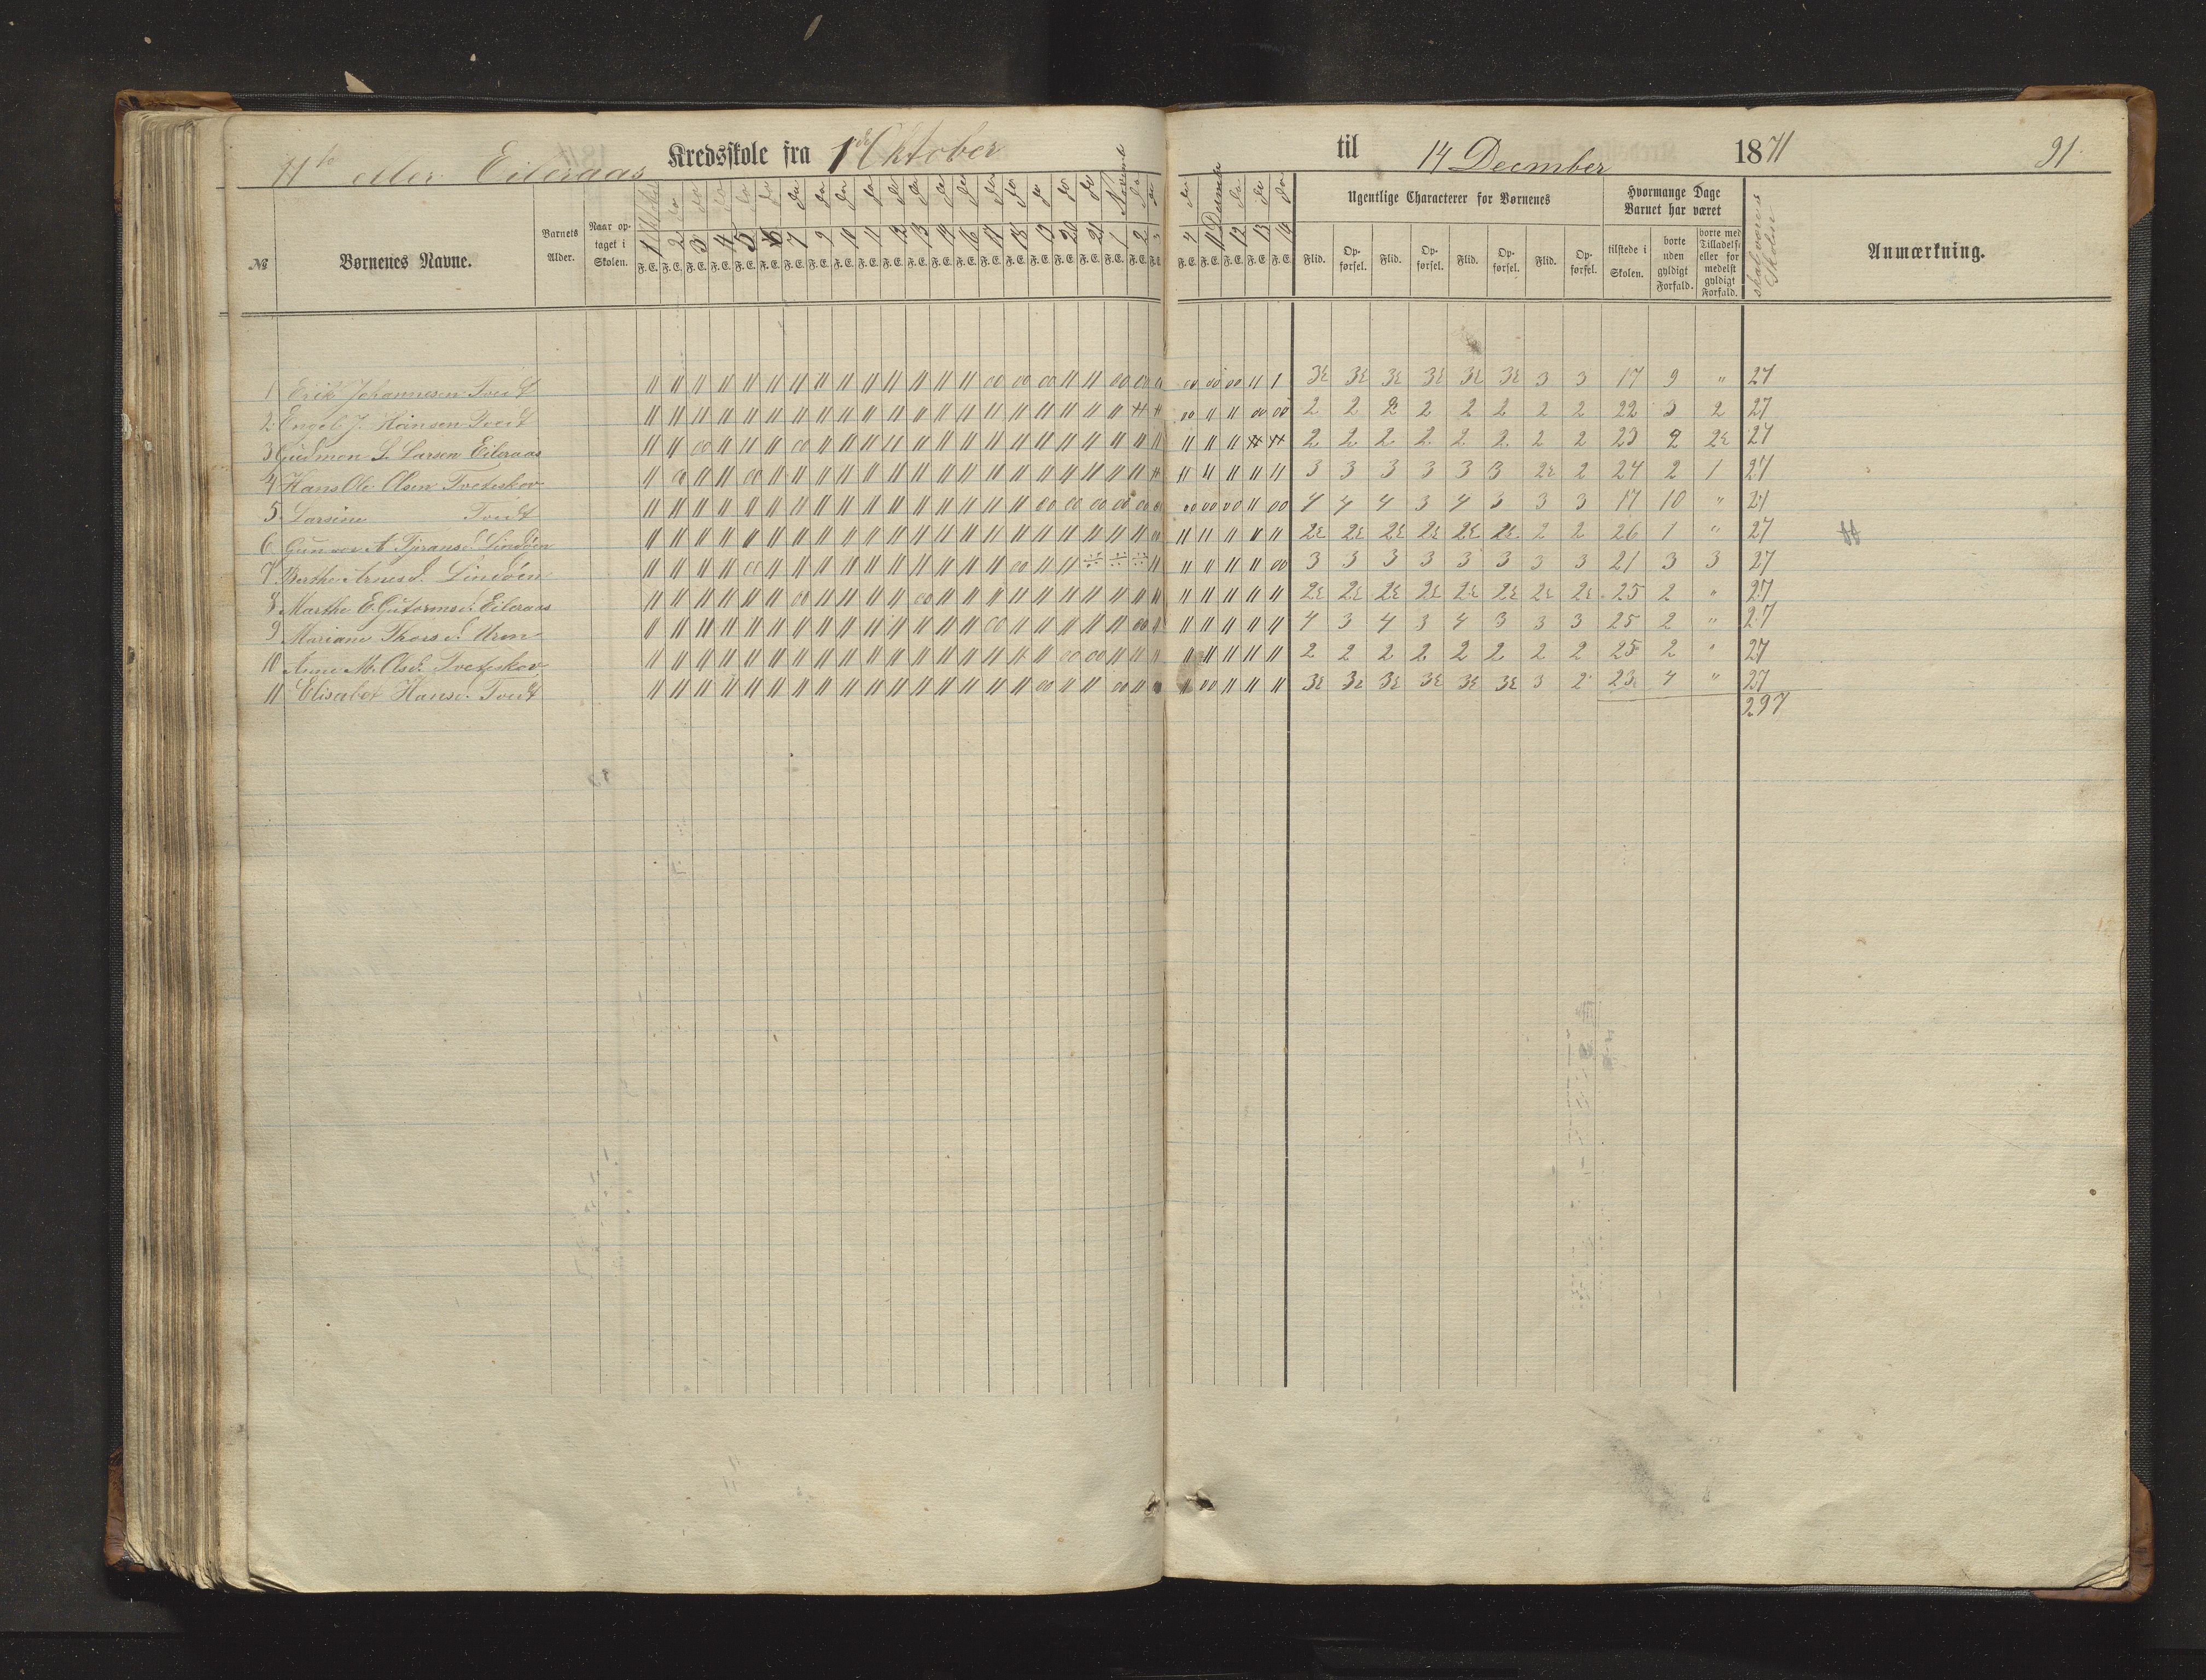 eller Eileraas Kredsskole fra 1de Oktober til 14 December 1871 91.
№ Børnenes Navne. Barnets Alder. Naar optaget i Skolen. Ugentlige Characterer for Børnenes Hvormange Dage Barnet har været Anmærkning.
1 2 3 4 5 6 7 9 10 11 12 13 14 16 17 18 19 20 21 1 2 3 4 11 12 13 14
F. E. F. E. F. E. F. E. F. E. F. E. F. E. F. E. F. E. F. E. F. E. F. E. F. E. F. E. F. E. F. E. F. E. F. E. F. E. F. E. F. E. F. E. F. E. F. E. F. E. F. E. F. E.
Flid. Opførsel. Flid. Opførsel. Flid. Opførsel. Flid. Opførsel. tilstede i Skolen. borte uden gyldigt Forfald. borte med Tilladelse eller formedelst gyldigt Forfald. Skolen
1 Erik Johannesen Tvedt 3½ 3½ 3½ 3½ 3½ 3½ 3 3 17 9 " 27
2 Engel J. Hansen Tvedt 2 2 2 2 2 2 2 2 22 3 2 27
3 Gudmon L. Larsen Eileraas 2 2 2 2 2 2 2 2 23 2 2½ 27
4 Hans Ole Olsen Tveteskov 3 3 3 3 3 3 2½ 2 24 2 1 27
5 Larsine Tvedt 4 4 4 3 4 3 3 3 17 10 " 27
6 A. Lindøen 2½ 2½ 2½ 2½ 2½ 2½ 2 2 26 1 " 27
7 Berthe Arnesd. Lindøen 3 3 3 3 3 3 3 3 21 3 3 27
8 Marthe E. Gutormsd. Eileraas 2½ 2½ 2½ 2½ 2½ 2½ 2½ 2½ 25 2 " 27
9 Mariane Thorsd. Uren 4 3 4 3 4 3 3 3 25 2 " 27
10 Anne M. Olsd. Tveteskov 2 2 2 2 2 2 2 2 25 2 " 27
11 Elisabet Hansd. Tvedt 3½ 3½ 3½ 3½ 3½ 3½ 3 2 23 4 " 27
297